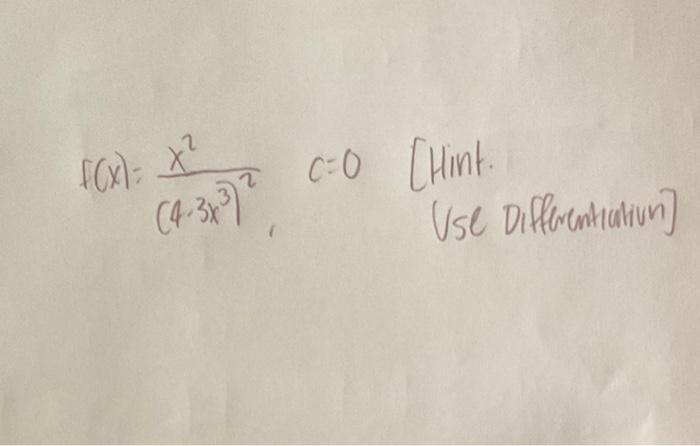 f(x)= x²/(4-3x³)², c=0 [Hint.
Use Differentiation]